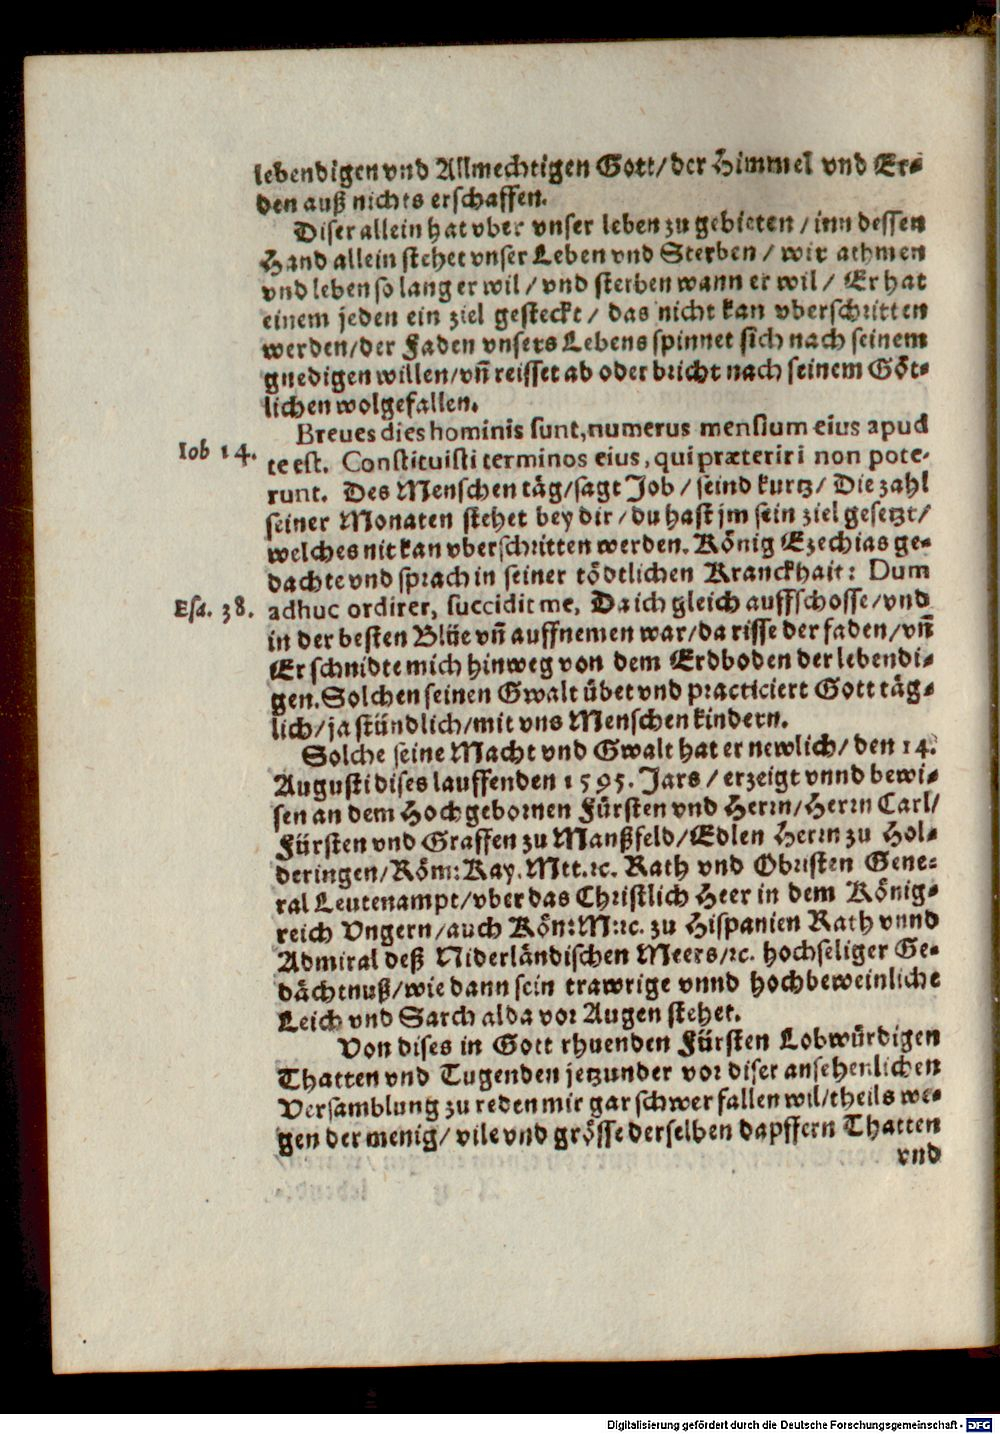 lebendigen vnd Allmechtigen Gott/ der Himmel vnd Er-
den auß nichts erschaffen.
Diser allein hat vber vnser leben zu gebieten / inn dessen
Hand allein stehet vnser Leben vnd Sterben / wir athmen
vnd leben so lang er wil / vnd sterben wann er wil / Er hat
einem jeden ein ziel gesteckt / das nicht kan vberschritten
werden/der Faden vnsers Lebens spinnet sich nach seinem
gnedigen willen/vñ reisset ab oder bricht nach seinem Göt-
lichen wolgefallen.
Breues dies hominis sunt, numerus mensium eius apud
Iob 14. te est. Constituisti terminos eius, qui præteriri non pote-
runt. Des Menschen täg/sagt Job / seind kurtz/ Die zahl
seiner Monaten stehet bey dir / du hast jm sein ziel gesetzt/
welches nit kan vberschritten werden. König Ezechias ge-
dachte vnd sprach in seiner tödtlichen Kranckhait: Dum
Esa. 38. adhuc ordirer, succidit me, Da ich gleich auffschosse/vnd
in der besten Blüe vñ auffnemen war/da risse der faden/vñ
Er schnidte mich hinweg von dem Erdboden der lebendi-
gen. Solchen seinen Gwalt übet vnd practiciert Gott täg-
lich/ja stündlich/mit vns Menschen kindern.
Solche seine Macht vnd Gwalt hat er newlich/ den 14.
Augusti dises lauffenden 1595. Jars / erzeigt vnnd bewi-
sen an dem Hochgebornen Fürsten vnd Herrn/Herrn Carl/
Fürsten vnd Graffen zu Manßfeld/Edlen Herrn zu Hol-
deringen/Röm: Kay. Mtt.ꝛc. Rath vnd Obristen Gene-
ral Leutenampt/vber das Christlich Heer in dem König-
reich Vngern/auch Kön: M:ꝛc. zu Hispanien Rath vnnd
Admiral deß Niderländischen Meers/ꝛc. hochseliger Ge-
dächtnuß/wie dann sein trawrige vnnd hochbeweinliche
Leich vnd Sarch alda vor Augen stehet.
Von dises in Gott rhuenden Fürsten Lobwürdigen
Thatten vnd Tugenden jetzunder vor diser ansehenlichen
Versamblung zu reden mir gar schwer fallen wil/theils we-
gen der menig/ vile vnd grösse derselben dapffern Thatten
vnd
Digitalisierung gefördert durch die Deutsche Forschungsgemeinschaft - DFG